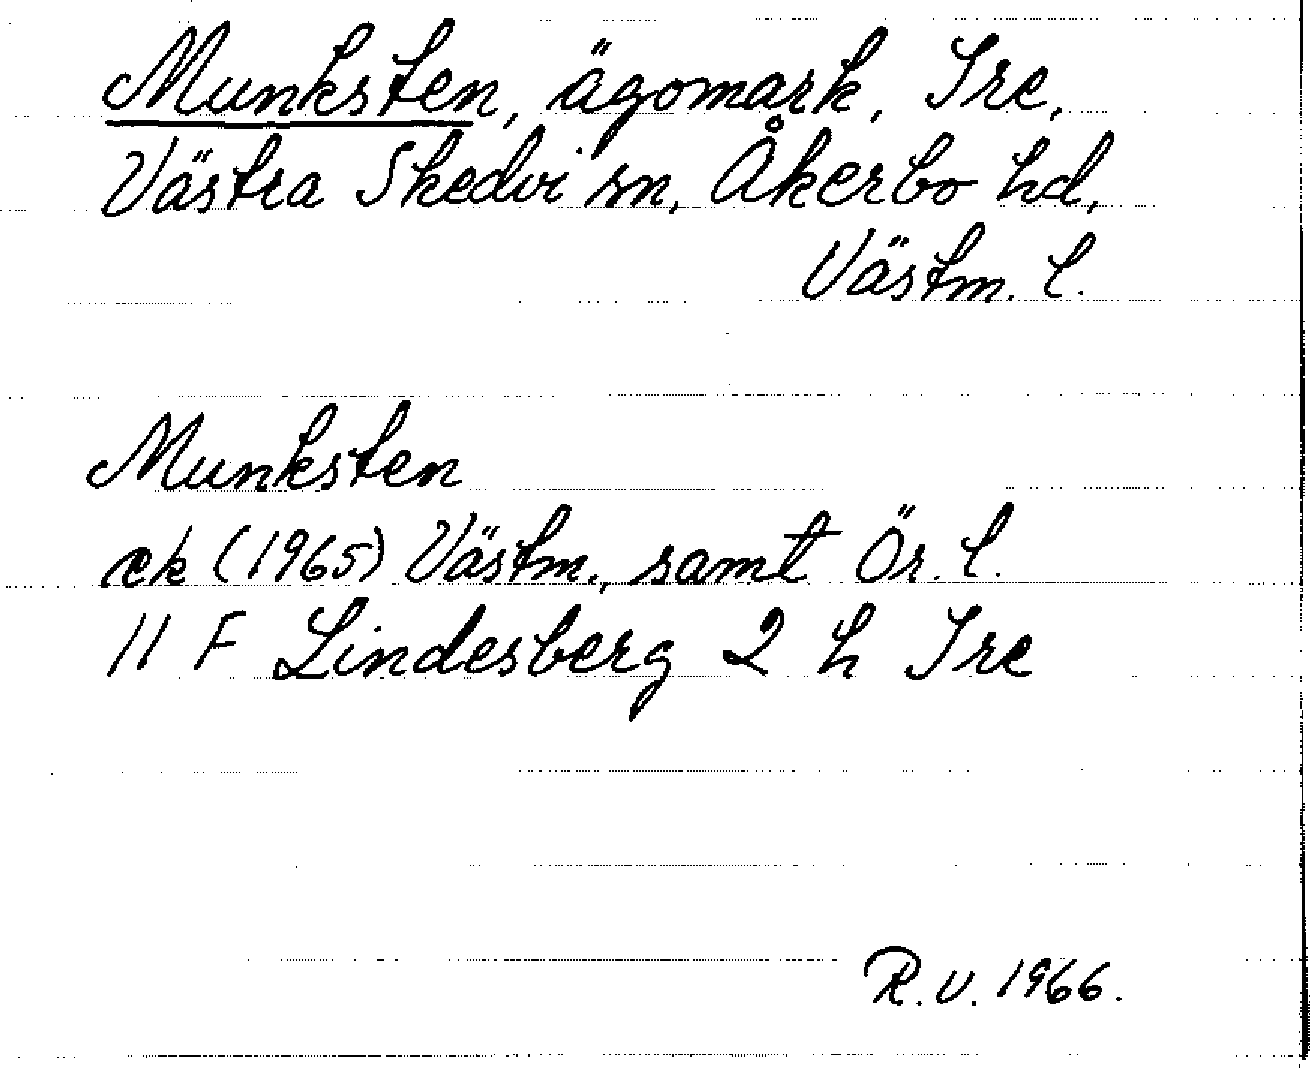 Munksten, ägomark, Ire,
Västra Skedvi sn, Åkerbo hd,
Västm. l.
Munksten
ek (1965) Västm., samt Ör. l.
11 F Lindesberg 2 h Ire
R.V. 1966.